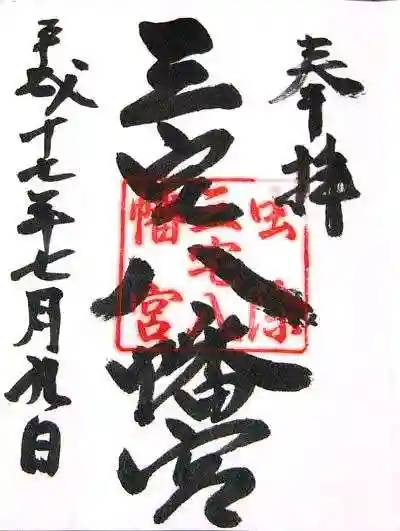 奉拝
三宅八幡宮
虫除
三宅八
幡宮
平成十七年七月九日